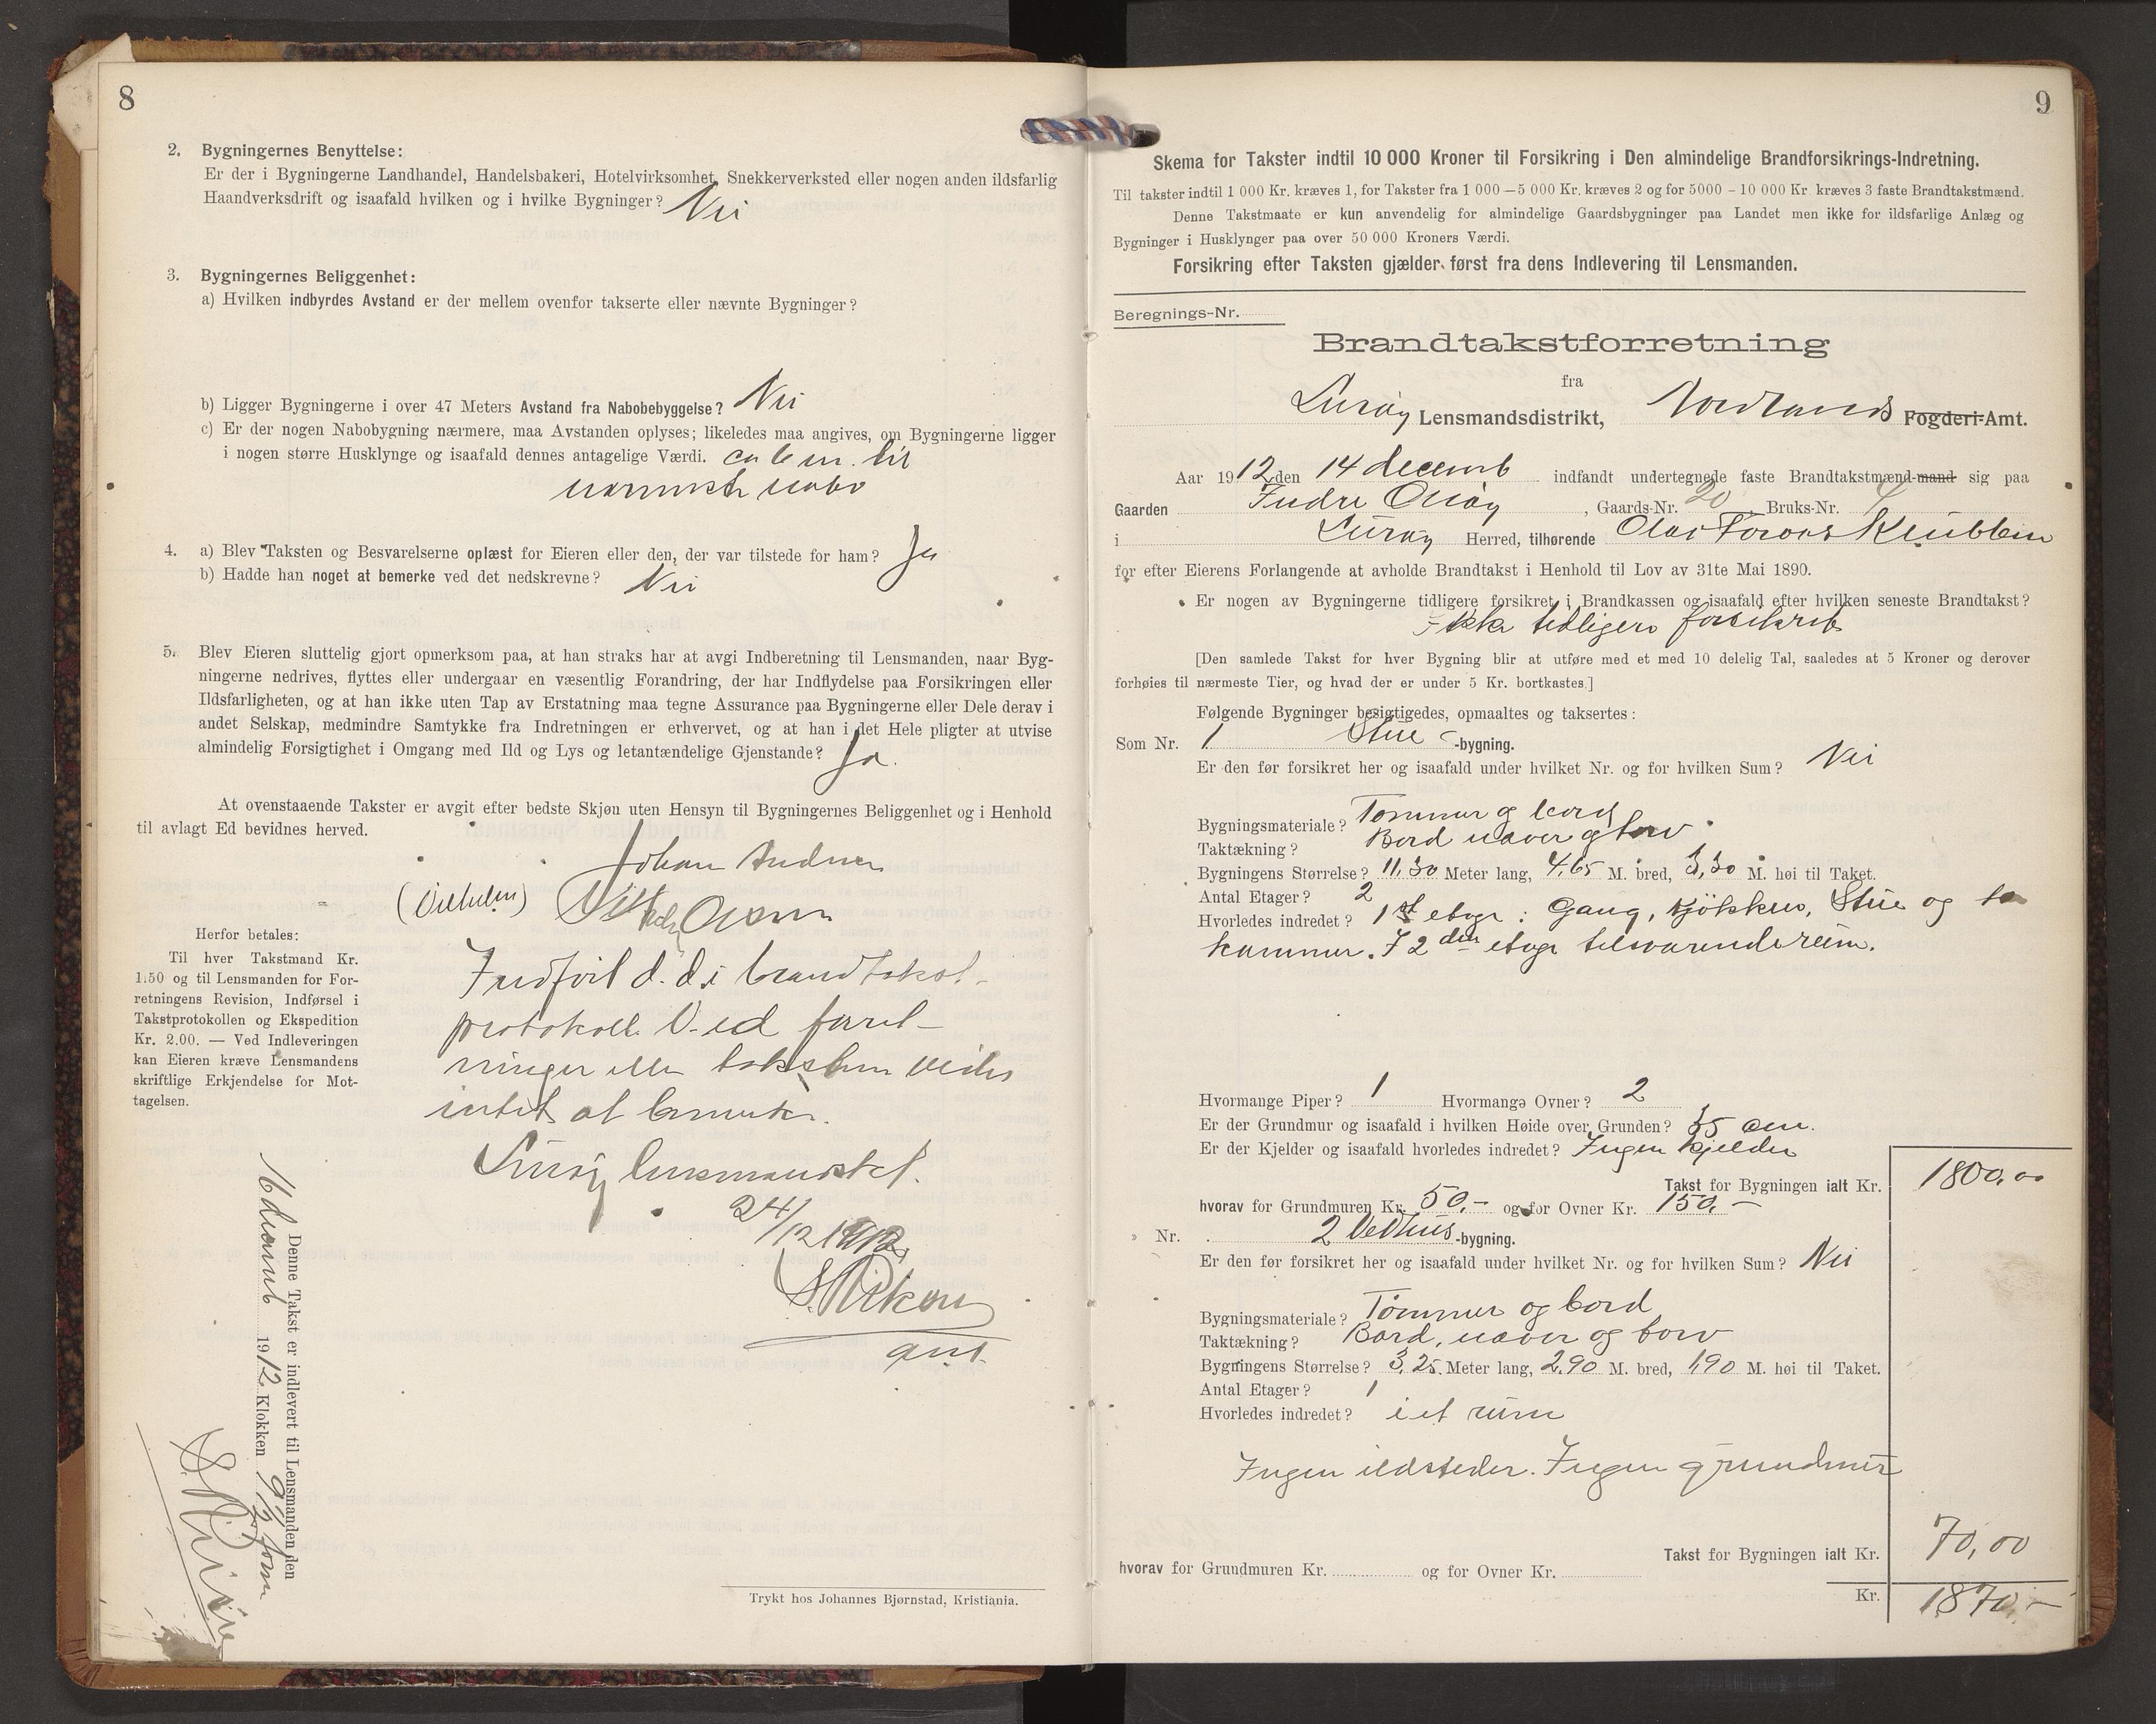 8
2. Bygningernes Benyttelse:
Er der i Bygningerne Landhandel, Handelsbakeri, Hotelvirksomhet, Snekkerverksted eller nogen anden ildsfarlig
Haandverksdrift og isaafald hvilken og i hvilke Bygninger? Nei
3. Bygningernes Beliggenhet:
a) Hvilken indbyrdes Avstand er der mellem ovenfor takserte eller nævnte Bygninger?
b) Ligger Bygningerne i over 47 Meters Avstand fra Nabobebyggelse? Nei
c) Er der nogen Nabobygning nærmere, maa Avstanden oplyses; likeledes maa angives, om Bygningerne ligger
i nogen større Husklynge og isaafald dennes antagelige Værdi. ca 6 m. til
nærmeste nabo
4. a) Blev Taksten og Besvarelserne oplæst for Eieren eller den, der var tilstede for ham? Ja
b) Hadde han noget at bemerke ved det nedskrevne? Nei
5. Blev Eieren sluttelig gjort opmerksom paa, at han straks har at avgi Indberetning til Lensmanden, naar Byg-
ningerne nedrives, flyttes eller undergaar en væsentlig Forandring, der har Indflydelse paa Forsikringen eller
Ildsfarligheten, og at han ikke uten Tap av Erstatning maa tegne Assurance paa Bygningerne eller Dele derav i
andet Selskap, medmindre Samtykke fra Indretningen er erhvervet, og at han i det Hele pligter at utvise
almindelig Forsigtighet i Omgang med Ild og Lys og letantændelige Gjenstande? Ja.
At ovenstaaende Takster er avgit efter bedste Skjøn uten Hensyn til Bygningernes Beliggenhet og i Henhold
til avlagt Ed bevidnes herved.
Johan
(Vilhelm)
Herfor betales:
Til hver Takstmand Kr.
1.50 og til Lensmanden for For-
retningens Revision, Indførsel i
Takstprotokollen og Ekspedition
Kr. 2.00. — Ved Indleveringen
kan Eieren kræve Lensmandens
skriftlige Erkjendelse for Mot-
tagelsen.
Indført d. d. i brandtakst-
protokoll. Ved forret-
ningen eller taksten vides
intet at bemerke.
Lurøy lensmandskt.
24/12 1912
Denne Takst er indlevert til Lensmanden den
1912 Klokken 9 1/2 form
Trykt hos Johannes Bjørnstad, Kristiania.
9
Skema for Takster indtil 10 000 Kroner til Forsikring i Den almindelige Brandforsikrings-Indretning.
Til takster indtil 1 000 Kr. kræves 1, for Takster fra 1 000 — 5 000 Kr. kræves 2 og for 5000 – 10 000 Kr. kræves 3 faste Brandtakstmænd.
Denne Takstmaate er kun anvendelig for almindelige Gaardsbygninger paa Landet men ikke for ildsfarlige Anlæg og
Bygninger i Husklynger paa over 50 000 Kroners Værdi.
Forsikring efter Taksten gjælder først fra dens Indlevering til Lensmanden.
Beregnings-Nr.
Brandtakstforretning
fra
Lurøy Lensmandsdistrikt, Nordlands Fogderi-Amt.
Aar 1912 den 14 decemb indfandt undertegnede faste Brandtakstmænd-mand sig paa
Gaarden Indre , Gaards-Nr. 20 Bruks-Nr. 4
i Lurøy Herred, tilhørende
for efter Eierens Forlangende at avholde Brandtakst i Henhold til Lov av 31te Mai 1890.
Er nogen av Bygningerne tidligere forsikret i Brandkassen og isaafald efter hvilken seneste Brandtakst?
Ikke tidligere forsikret
[Den samlede Takst for hver Bygning blir at utføre med et med 10 delelig Tal, saaledes at 5 Kroner og derover
forhøies til nærmeste Tier, og hvad der er under 5 Kr. bortkastes.]
Følgende Bygninger besigtigedes, opmaaltes og taksertes:
Som Nr. 1 Stue -bygning.
Er den før forsikret her og isaafald under hvilket Nr. og for hvilken Sum? Nei
Bygningsmateriale? Tømmer og bord
Taktækning? Bord næver og torv
Bygningens Størrelse? 11,30 Meter lang, 4,65 M. bred, 3,30 M. høi til Taket.
Antal Etager? 2
Hvorledes indredet? 1st etage: Gang, kjøkken, Stue og to
kammer. I 2den etage tilsvarende rum.
Hvormange Piper? 1 Hvormange Ovner? 2
Er der Grundmur og isaafald i hvilken Høide over Grunden? 35 cm.
Er der Kjelder og isaafald hvorledes indredet? Ingen kjelder
Takst for Bygningen ialt Kr. 1800,00
hvorav for Grundmuren Kr. 50,- og for Ovner Kr. 150,-
Nr. 2 Vedhus -bygning.
Er den før forsikret her og isaafald under hvilket Nr. og for hvilken Sum? Nei
Bygningsmateriale? Tømmer og bord
Taktækning? Bord, næver og torv
Bygningens Størrelse? 3,25 Meter lang, 2,90 M. bred, 1,90 M. høi til Taket.
Antal Etager? 1
Hvorledes indredet? i et rum
Ingen ildsteder. Ingen grundmur
Takst for Bygningen ialt Kr. 70,00
hvorav for Grundmuren Kr. og for Ovner Kr.
Kr. 1870,-